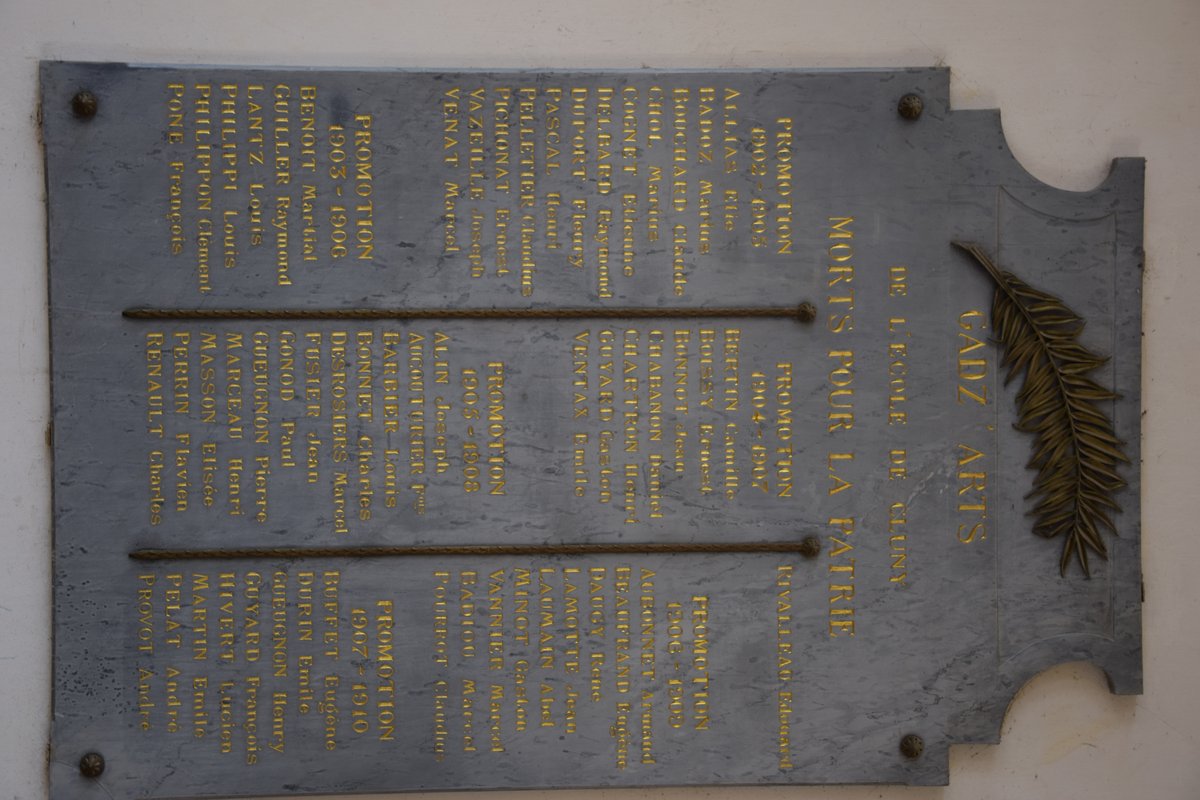 GADZ' ARTS
DE L'ECOLE DE CLUNY
MORTS POUR LA PATRIE
PROMOTION
1902-1905
ALLIAS Elie
BADOZ Marius
BOUCHARD Claude
CHOL Marius
COGNET Etienne
DELBARD Raymond
DUPORT Fleury
PASCAL Henri
PELLETIER Claudius
PICHONAT Ernest
VAZEILLE Joseph
VENAT Marcel
PROMOTION
1903-1906
BENOIT Martial
GUILLER Raymond
LANTZ Louis
PHILIPPI Louis
PHILIPPON Clément
PONE François
PROMOTION
1904-1907
BERTIN Camille
BOESSY Ernest
BONNOT Jean
CHABANON Daniel
CHARTRON Henri
GUYARD Gaston
VENTAX Emile
PROMOTION
1905-1908
ALIN Joseph
AUCOUTURIER
BARBIER-Louis
BONNET Charles
DESROSIERS Marcel
FUSIER Jean
GONOD Paul
GUEUGNON Pierre
MARCEAU Henri
MASSON Elisée
PERRIN Flavien
RENAULT Charles
RIVALLEAU Edouard
PROMOTION
1906-1909
AURONNET Armand
BEAUFRAND Eugène
DAUGY René
LAMOTTE Jean
LAUMAIN Abel
MINOT Gaston
VANNIER Marcel
BADIOU Marcel
POURROT Claudius
PROMOTION
1907-1910
BUFFET Eugène
DURIN Emile
GUEUGNON Henry
GUYARD François
HIVERT Lucien
MARTIN Emile
PELAT André
PROVOT André